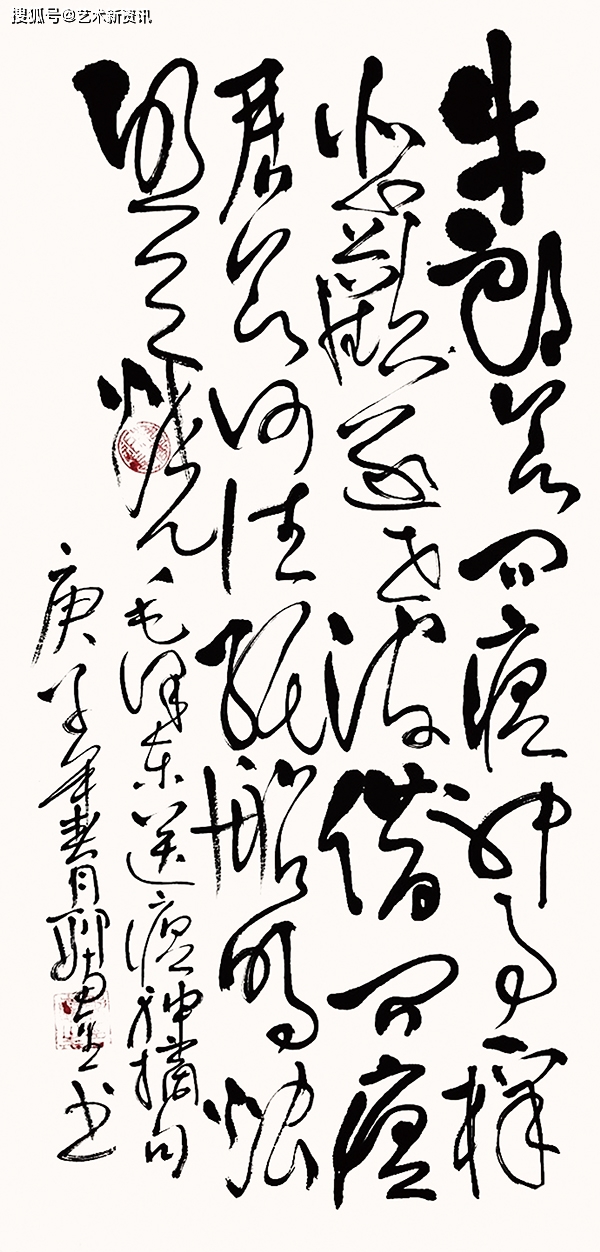 搜狐号@艺术新资讯
牛郎欲问瘟神事一样
悲歡逐逝波借问瘟
君欲何往纸船明烛
照天烧
毛泽东送瘟神摘句
庚子年春月 书